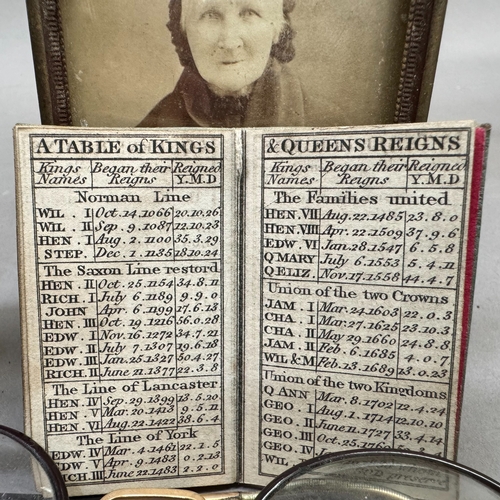 A TABLE of KINGS
Kings Names Began their Reigns Reigned Y.M.D
Norman Line
WIL . I Oct.14.1066 20.10.26
WIL . II Sep.9.1087 12.10.23
HEN . I Aug.2.1100 35.3.29
STEP. Dec.1.1135 18.10.24
The Saxon Line restord
HEN II Oct.25.1154 34.8.11
RICH. I July 6.1189 9.9.0
JOHN Apr.6.1199 17.6.13
HEN. III Oct.19.1216 56.0.28
EDW. I Nov.16.1272 34.7.21
EDW. II July 7.1307 19.6.18
EDW. III Jan.25.1327 50.4.27
RICH. II June 21.1377 22.3.8
The Line of Lancaster
HEN. IV Sep.29.1399 13.5.20
HEN. V Mar.20.1413 9.5.11
HEN. VI Aug.22.1422 38.6.4
The Line of York
EDW. IV Mar.4.1461 22.1.5
EDW. V Apr.9.1483 0.2.13
RICH. III June 22.1483 2.2.0
& QUEENS REIGNS
Kings Names Began their Reigns Reigned Y.M.D
The Families united
HEN. VII Aug.22.1485 23.8.0
HEN. VIII Apr.22.1509 37.9.6
EDW. VI Jan.28.1547 6.5.8
Q MARY July 6.1553 5.4.11
Q ELIZ. Nov.17.1558 44.4.7
Union of the two Crowns
JAM . I Mar.24.1603 22.0.3
CHA . I Mar.27.1625 23.10.3
CHA . II May 29.1660 24.8.8
JAM . II Feb.6.1685 4.0.7
WIL & M Feb.13.1689 13.0.23
Union of the two Kingdoms
Q ANN Mar.8.1702 12.4.24
GEO . I Aug.1.1714 12.10.10
GEO. II June 11.1727 33.4.14
GEO. III Oct.25.1760
GEO. IV
WIL